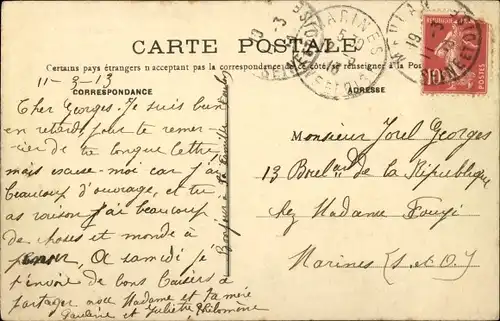 CARTE POSTALE
Certains pays étrangers n'acceptant pas la correspondance de ce côté, se renseigner à la Poste
CORRESPONDANCE
ADRESSE
MARINES
10
11-3-13
Cher Georges. Je suis bien
en retard pour te remer-
cier de ta longue lettre,
mais excuse-moi car j'ai
beaucoup d'ouvrage, et tu
as raison j'ai beaucoup
de choses et monde à
penser. A samedi je
t'envoie de bons baisers à
partager avec Madame et ta mère
Pauline et Juliette Philomène
Bonjour à la famille
Monsieur Jorel Georges
13 Boul ard de la République
chez Madame
Marines (S. et O.)